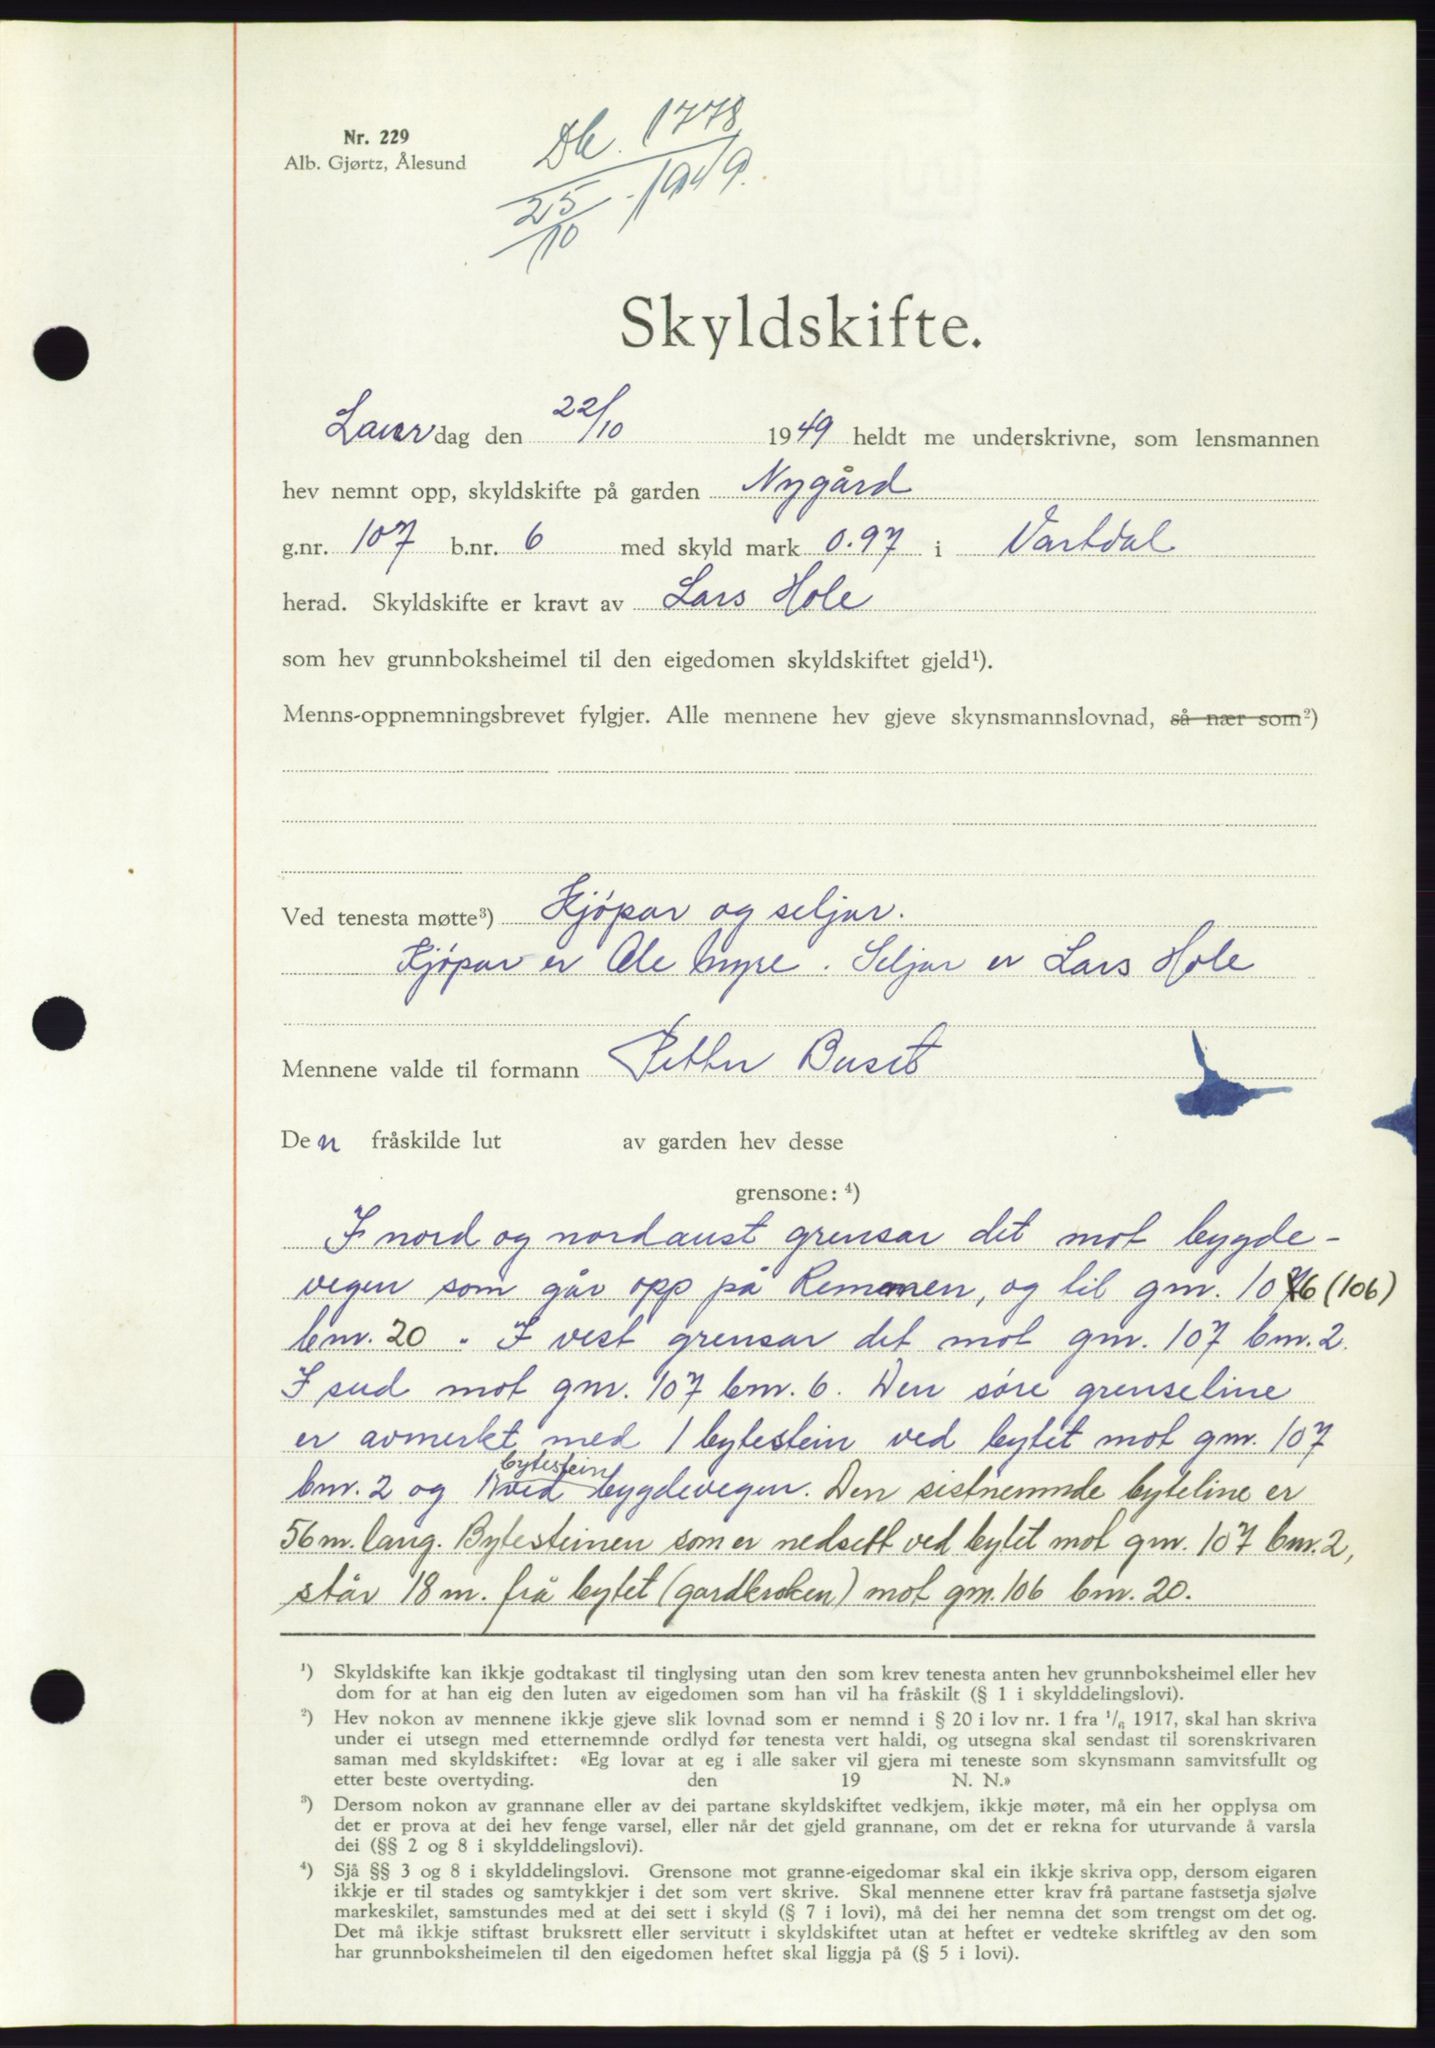 Nr. 229
Alb. Gjørtz, Ålesund
Db. 1778
25/10 - 1949.
Skyldskifte.
Laurdag den 22/10 1949 heldt me underskrivne, som lensmannen
hev nemnt opp, skyldskifte på garden Nygård
g.nr. 107 b.nr. 6 med skyld mark 0.97 i Vartdal
herad. Skyldskifte er kravt av Lars Hole
som hev grunnboksheimel til den eigedomen skyldskiftet gjeld¹).
Menns-oppnemningsbrevet fylgjer. Alle mennene hev gjeve skynsmannslovnad, så nær som²)
Ved tenesta møtte³) Kjøpar og seljar.
Kjøpar er Ole Myre. Seljar er Lars Hole
Mennene valde til formann Petter Buset
Den fråskilde lut av garden hev desse
grensone: ⁴)
I nord og nordaust grensar det mot bygde-
vegen som går opp på Remmen, og til gnr. 106 (106)
bnr. 20. I vest grensar det mot gnr. 107 bnr. 2.
I sud mot gnr. 107 bnr. 6. Den søre grenseline
er avmerkt med 1 bytestein ved bytet mot gnr. 107
bnr. 2 og 1 bytestein ved bygdevegen. Den sistnemnde byteline er
56 m. lang. Bytesteinen som er nedsett ved bytet mot gnr. 107 bnr. 2,
står 18 m. frå bytet (gardkroken) mot gnr. 106 bnr. 20.
¹) Skyldskifte kan ikkje godtakast til tinglysing utan den som krev tenesta anten hev grunnboksheimel eller hev
dom for at han eig den luten av eigedomen som han vil ha fråskilt (§ 1 i skylddelingslovi).
²) Hev nokon av mennene ikkje gjeve slik lovnad som er nemnd i § 20 i lov nr. 1 fra ¹/₆ 1917, skal han skriva
under ei utsegn med etternemnde ordlyd før tenesta vert haldi, og utsegna skal sendast til sorenskrivaren
saman med skyldskiftet: «Eg lovar at eg i alle saker vil gjera mi teneste som skynsmann samvitsfullt og
etter beste overtyding. den 19 N. N.»
³) Dersom nokon av grannane eller av dei partane skyldskiftet vedkjem, ikkje møter, må ein her opplysa om
det er prova at dei hev fenge varsel, eller når det gjeld grannane, om det er rekna for uturvande å varsla
dei (§§ 2 og 8 i skylddelingslovi).
⁴) Sjå §§ 3 og 8 i skylddelingslovi. Grensone mot granne-eigedomar skal ein ikkje skriva opp, dersom eigaren
ikkje er til stades og samtykkjer i det som vert skrive. Skal mennene etter krav frå partane fastsetja sjølve
markeskilet, samstundes med at dei sett i skyld (§ 7 i lovi), må dei her nemna det som trengst om det og.
Det må ikkje stiftast bruksrett eller servitutt i skyldskiftet utan at heftet er vedteke skriftleg av den som
har grunnboksheimelen til den eigedomen heftet skal liggja på (§ 5 i lovi).